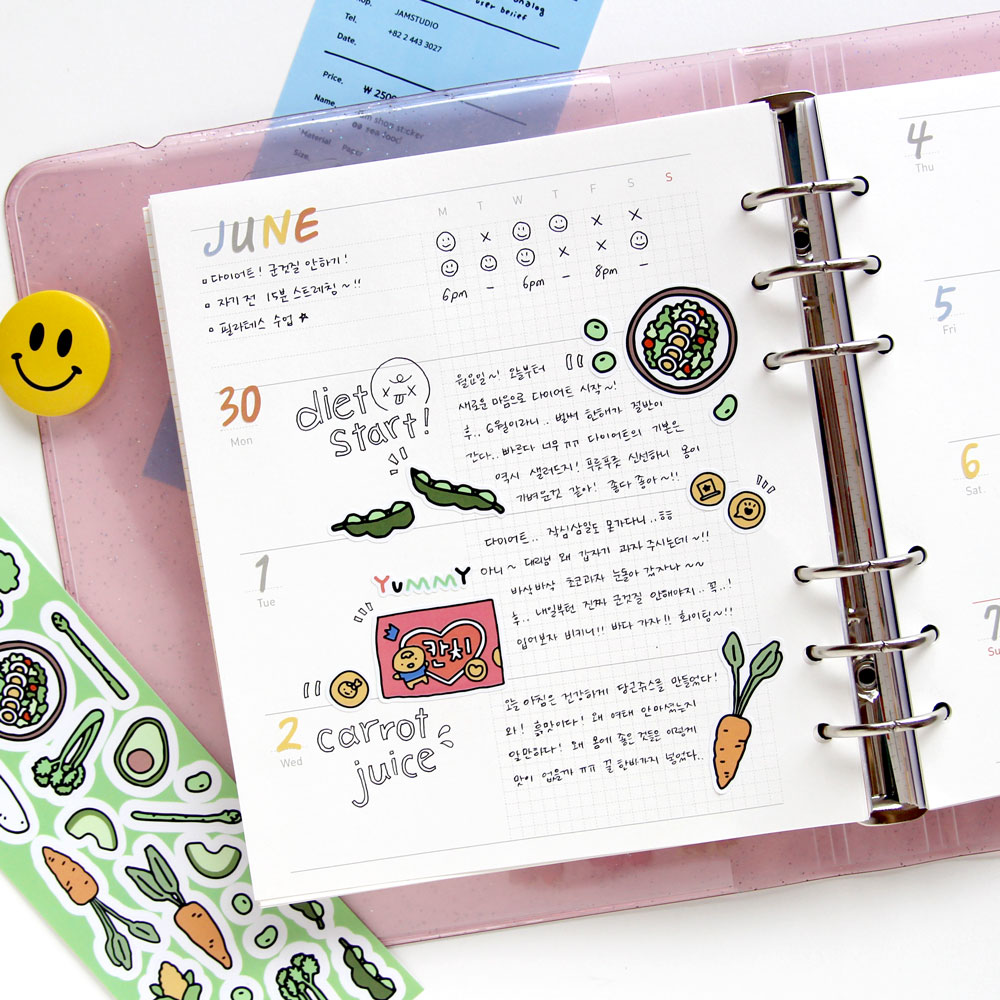 nalog
user belief
JAMSTUDIO
Tel.
+82 2 443 3027
Date.
Price.
₩ 250
Name.
shop sticker
sea food
Material.
Paper
Size.
JUNE
M T W T F S S
□ 다이어트! 군것질 안하기!
□ 자기 전 15분 스트레칭~!!
□ 필라테스 수업 ☆
☺ x ☺ ☺ x x
☺ ☺ ☺ x x ☺
6pm - 6pm - 8pm -
30
Mon
diet
start!
월요일~! 오늘부터
새로운 마음으로 다이어트 시작~!
후.. 6월이라니.. 벌써 한해가 절반이
간다.. 빠르다 너무 ㅠㅠ 다이어트의 기본은
역시 샐러드지! 푸릇푸릇 신선하니 몸이
가벼운것 같아! 좋다 좋아~!!
1
Tue
YuMMY
칸치
다이어트.. 작심삼일도 못가다니..ㅎㅎ
아니~ 대리님 왜 갑자기 과자 주시는데~!!
바삭바삭 초코과자 눈돌아 갔자나~~
후.. 내일부턴 진짜 군것질 안해야지.. 꼭..!
입어보자 비키니!! 바다 가자!! 화이팅~!!
2
Wed
carrot
juice
오늘 아침은 건강하게 당근쥬스를 만들었다!
와! 흙맛이다! 왜 여태 안마셨는지
알만하다! 왜 몸에 좋은 것들은 이렇게
맛이 없을까 ㅠㅠ 꿀 한바가지 넣었다..
4
Thu
5
Fri
6
Sat
7
Su